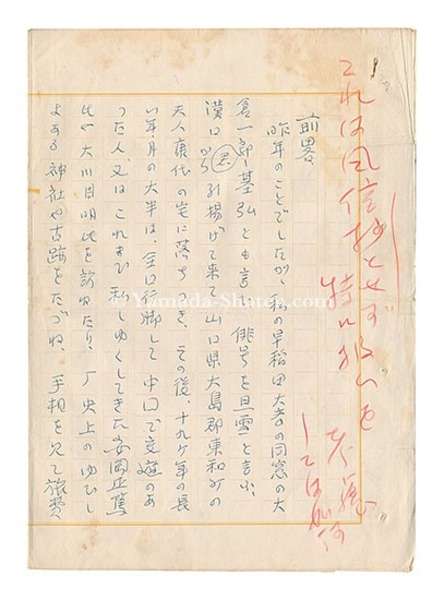 これは風信抄とせず
特に扱いを
しては如何
前畧、
昨年のことでしたが、私の早稲田大学の同窓の大
倉一郎、基弘とも言い、俳号を旦雪と言い、
漢口から 引揚げて来て、山口県大島郡東和町の
夫人康代の宅に落ちつき、その後、十九ケ年の長
い年月の大半は、全国行脚して 中国で交遊のあ
った人、又はこれまで私しゅくしてきた安岡正篤
氏や大川周明氏を訪ねたり、歴史上のゆいしょ
よある 神社や古跡をたづね、手相を見て旅費
© Yamada-Shoten.com